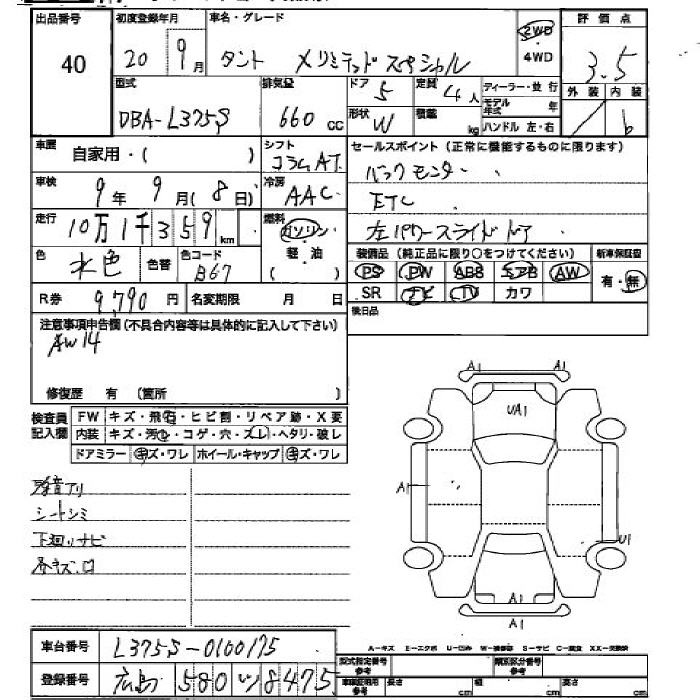 出品番号 初度登録年月 車名・グレード 評価点
40 20 9月 タント Xリミテッド スペシャル 2WD・4WD 3.5
型式 排気量 ドア 定員 ディーラー・並行 外装 内装
DBA-L375S 660cc 5 4人 モデル年式 年 b
形状 W 積載 kg ハンドル 左・右
車歴 自家用・( ) シフト コラムAT セールスポイント (正常に機能するものに限ります)
車検 9年 9月(8日) 冷房 AAC バックモニター
ETC
走行 10万1千359km 燃料 ガソリン・軽・油 ( ) 左パワースライドドア
色 水色 色替 色コード B67 装備品 (純正品に限り○をつけてください) 新車保証書
PS PW ABS SAB AW 有・無
R券 9,790円 名変期限 月 日 SR ナビ TV カワ
注意事項申告欄(不具合内容等は具体的に記入して下さい) 後日品
AW14
修復歴 有 (箇所 )
検査員記入欄 FW キズ・飛石・ヒビ割・リペア跡・X要
内装 キズ・汚レ・コゲ・穴・スレ・ヘタリ・破レ
ドアミラー キズ・ワレ ホイール・キャップ キズ・ワレ
A1 A1
UA1
A1
U1
A1
A1
シートシミ
下廻リサビ
A-キズ E-エクボ U-凹ミ W-補修跡 S-サビ C-腐食 XX-交換跡
車台番号 L375S-0100175
登録番号 広島 580 ツ 8475
型式指定番号 参考 類別区分番号 参考
車検証明用 参考 長さ cm 幅 cm 高さ cm